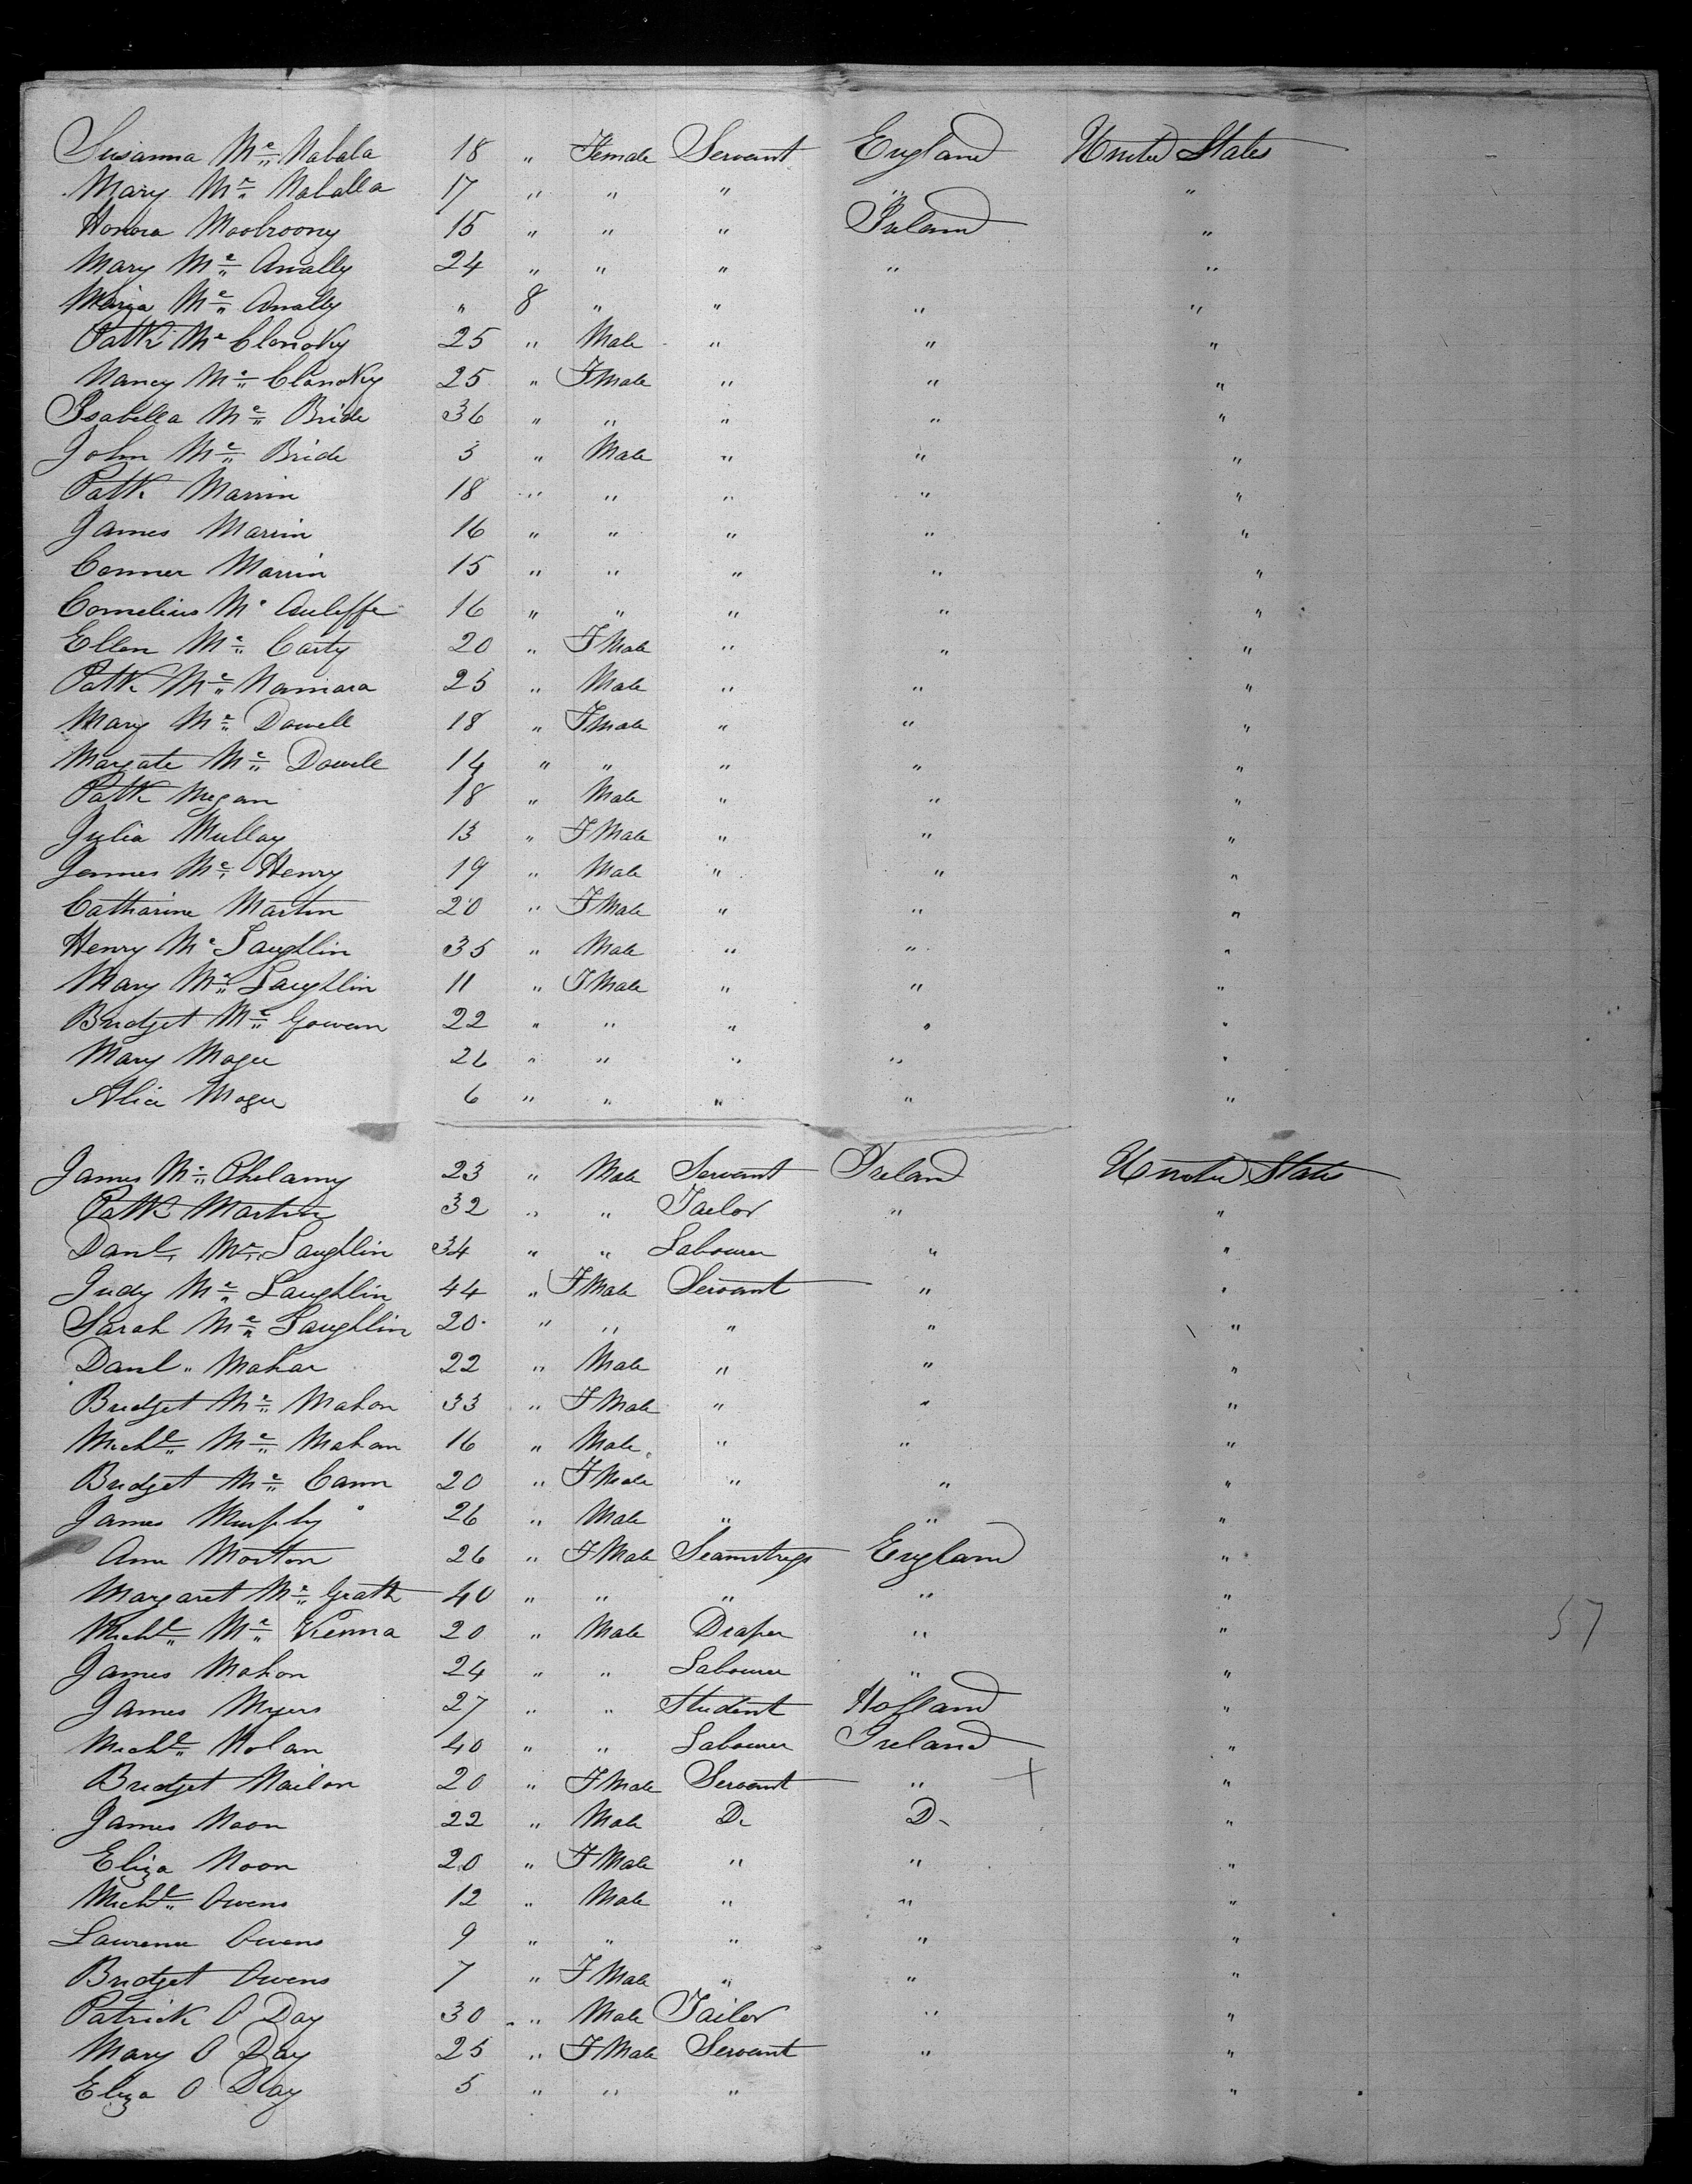 Susanna Mc Nabala 18 " Female Servant England United States
Mary Mc Naballa 17 " " " " "
Honora Moolroony 15 " " " Ireland "
Mary Mc Anally 24 " " " " "
Mc Anally " 8 " " " "
Patk Mc Clonoky 25 " Male " " "
Nancy Mc Clonoky 25 " FMale " " "
Isabella Mc Bride 36 " " " " "
John Mc Bride 3 " Male " " "
Patk Marrin 18 " " " " "
James Marrin 16 " " " " "
Conner Marrin 15 " " " " "
Cornelius Mc Auleffe 16 " " " " "
Ellen Mc Carty 20 " FMale " " "
Patk Mc Namara 25 " Male " " "
Mary Mc Dowell 18 " FMale " " "
Margate Mc Dowell 14 " " " " "
Patk Megan 18 " Male " " "
Julia Mullay 13 " FMale " " "
James Mc Henry 19 " Male " " "
Catharine Martin 20 " FMale " " "
Henry Mc Laughlin 35 " Male " " "
Mary Mc Laughlin 11 " FMale " " "
Bridget Mc Gowan 22 " " " " "
Mary Magee 26 " " " " "
Alice Magee 6 " " " " "
James Mc Chelamy 23 " Male Servant Ireland United States
Patk Martin 32 " " Tailor " "
Danl Mc Laughlin 34 " " Labourer " "
Judy Mc Laughlin 44 " FMale Servant " "
Sarah Mc Laughlin 20 " " " " "
Danl Mahar 22 " Male " " "
Bridget Mc Mahon 33 " FMale " " "
Michl Mc Mahon 16 " Male " " "
Bridget Mc Cann 20 " FMale " " "
James Murphy 26 " Male " " "
Ann Morton 26 " FMale Seamstress England "
Margaret Mc Grath 40 " " " " "
Michl Mc Kenna 20 " Male Draper " "
James Mahon 24 " " Labourer " "
James Myers 27 " " Student Holland "
Michl Nolan 40 " " Labourer Ireland "
Bridget Nailon 20 " FMale Servant " "
James Noon 22 " Male Do Do "
Eliza Noon 20 " FMale " " "
Michl Owens 12 " Male " " "
Laurence Owens 9 " " " " "
Bridget Owens 7 " FMale " " "
Patrick O Day 30 " Male Tailor " "
Mary O Day 25 " FMale Servant " "
Eliza O Day 5 " " " "
57